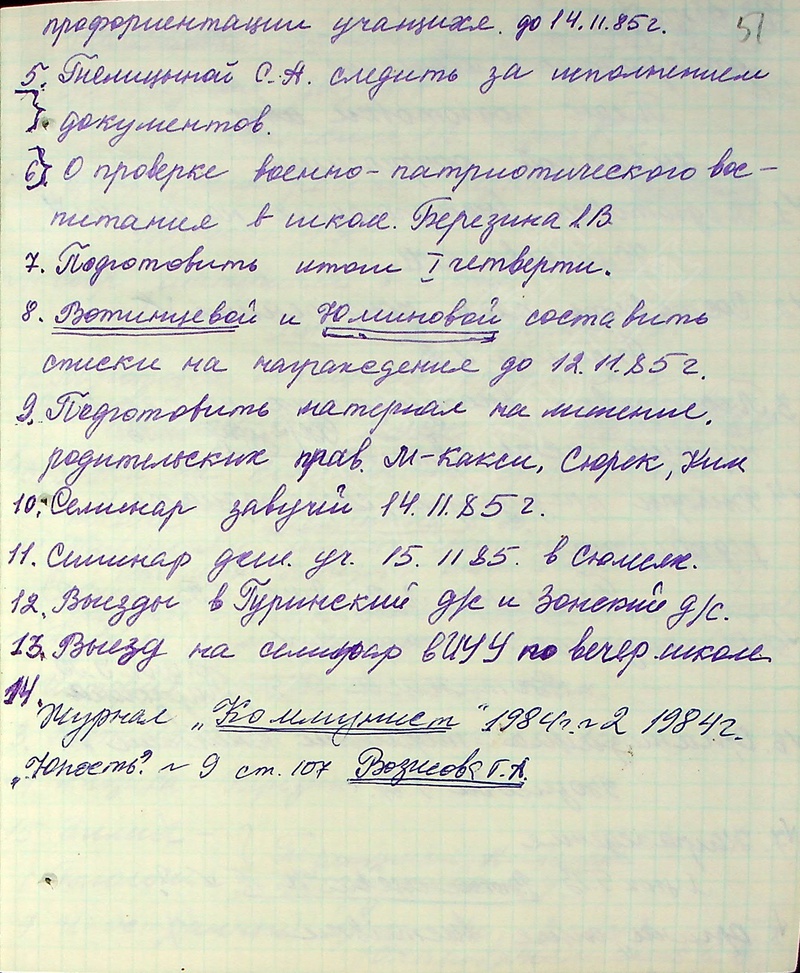 51
профориентации учащихся. до 14.11.85 г.
5. Гнелицыной С.А. следить за исполнением
документов.
6) О проверке военно-патриотического вос-
питания в школ. Березина Л.В
7. Подготовить итоги I четверти.
8. Вотинцевой и Юминовой составить
списки на награждения до 12.11.85 г.
9. Подготовить материал на лишение.
родительских прав. М-Какси, Сюрек, Ким
10. Семинар завучей 14.11.85 г.
11. Семинар уч. 15.11 85. в Сюмсях.
12. Выезды в Гуринский д/с и Зонский д/с.
13. Выезд на семинар в ИУУ по вечер школе
14.
Журнал „Коммунист" 1984 г. № 2 1984 г.
„Юность" № 9 ст. 107 Т.А.